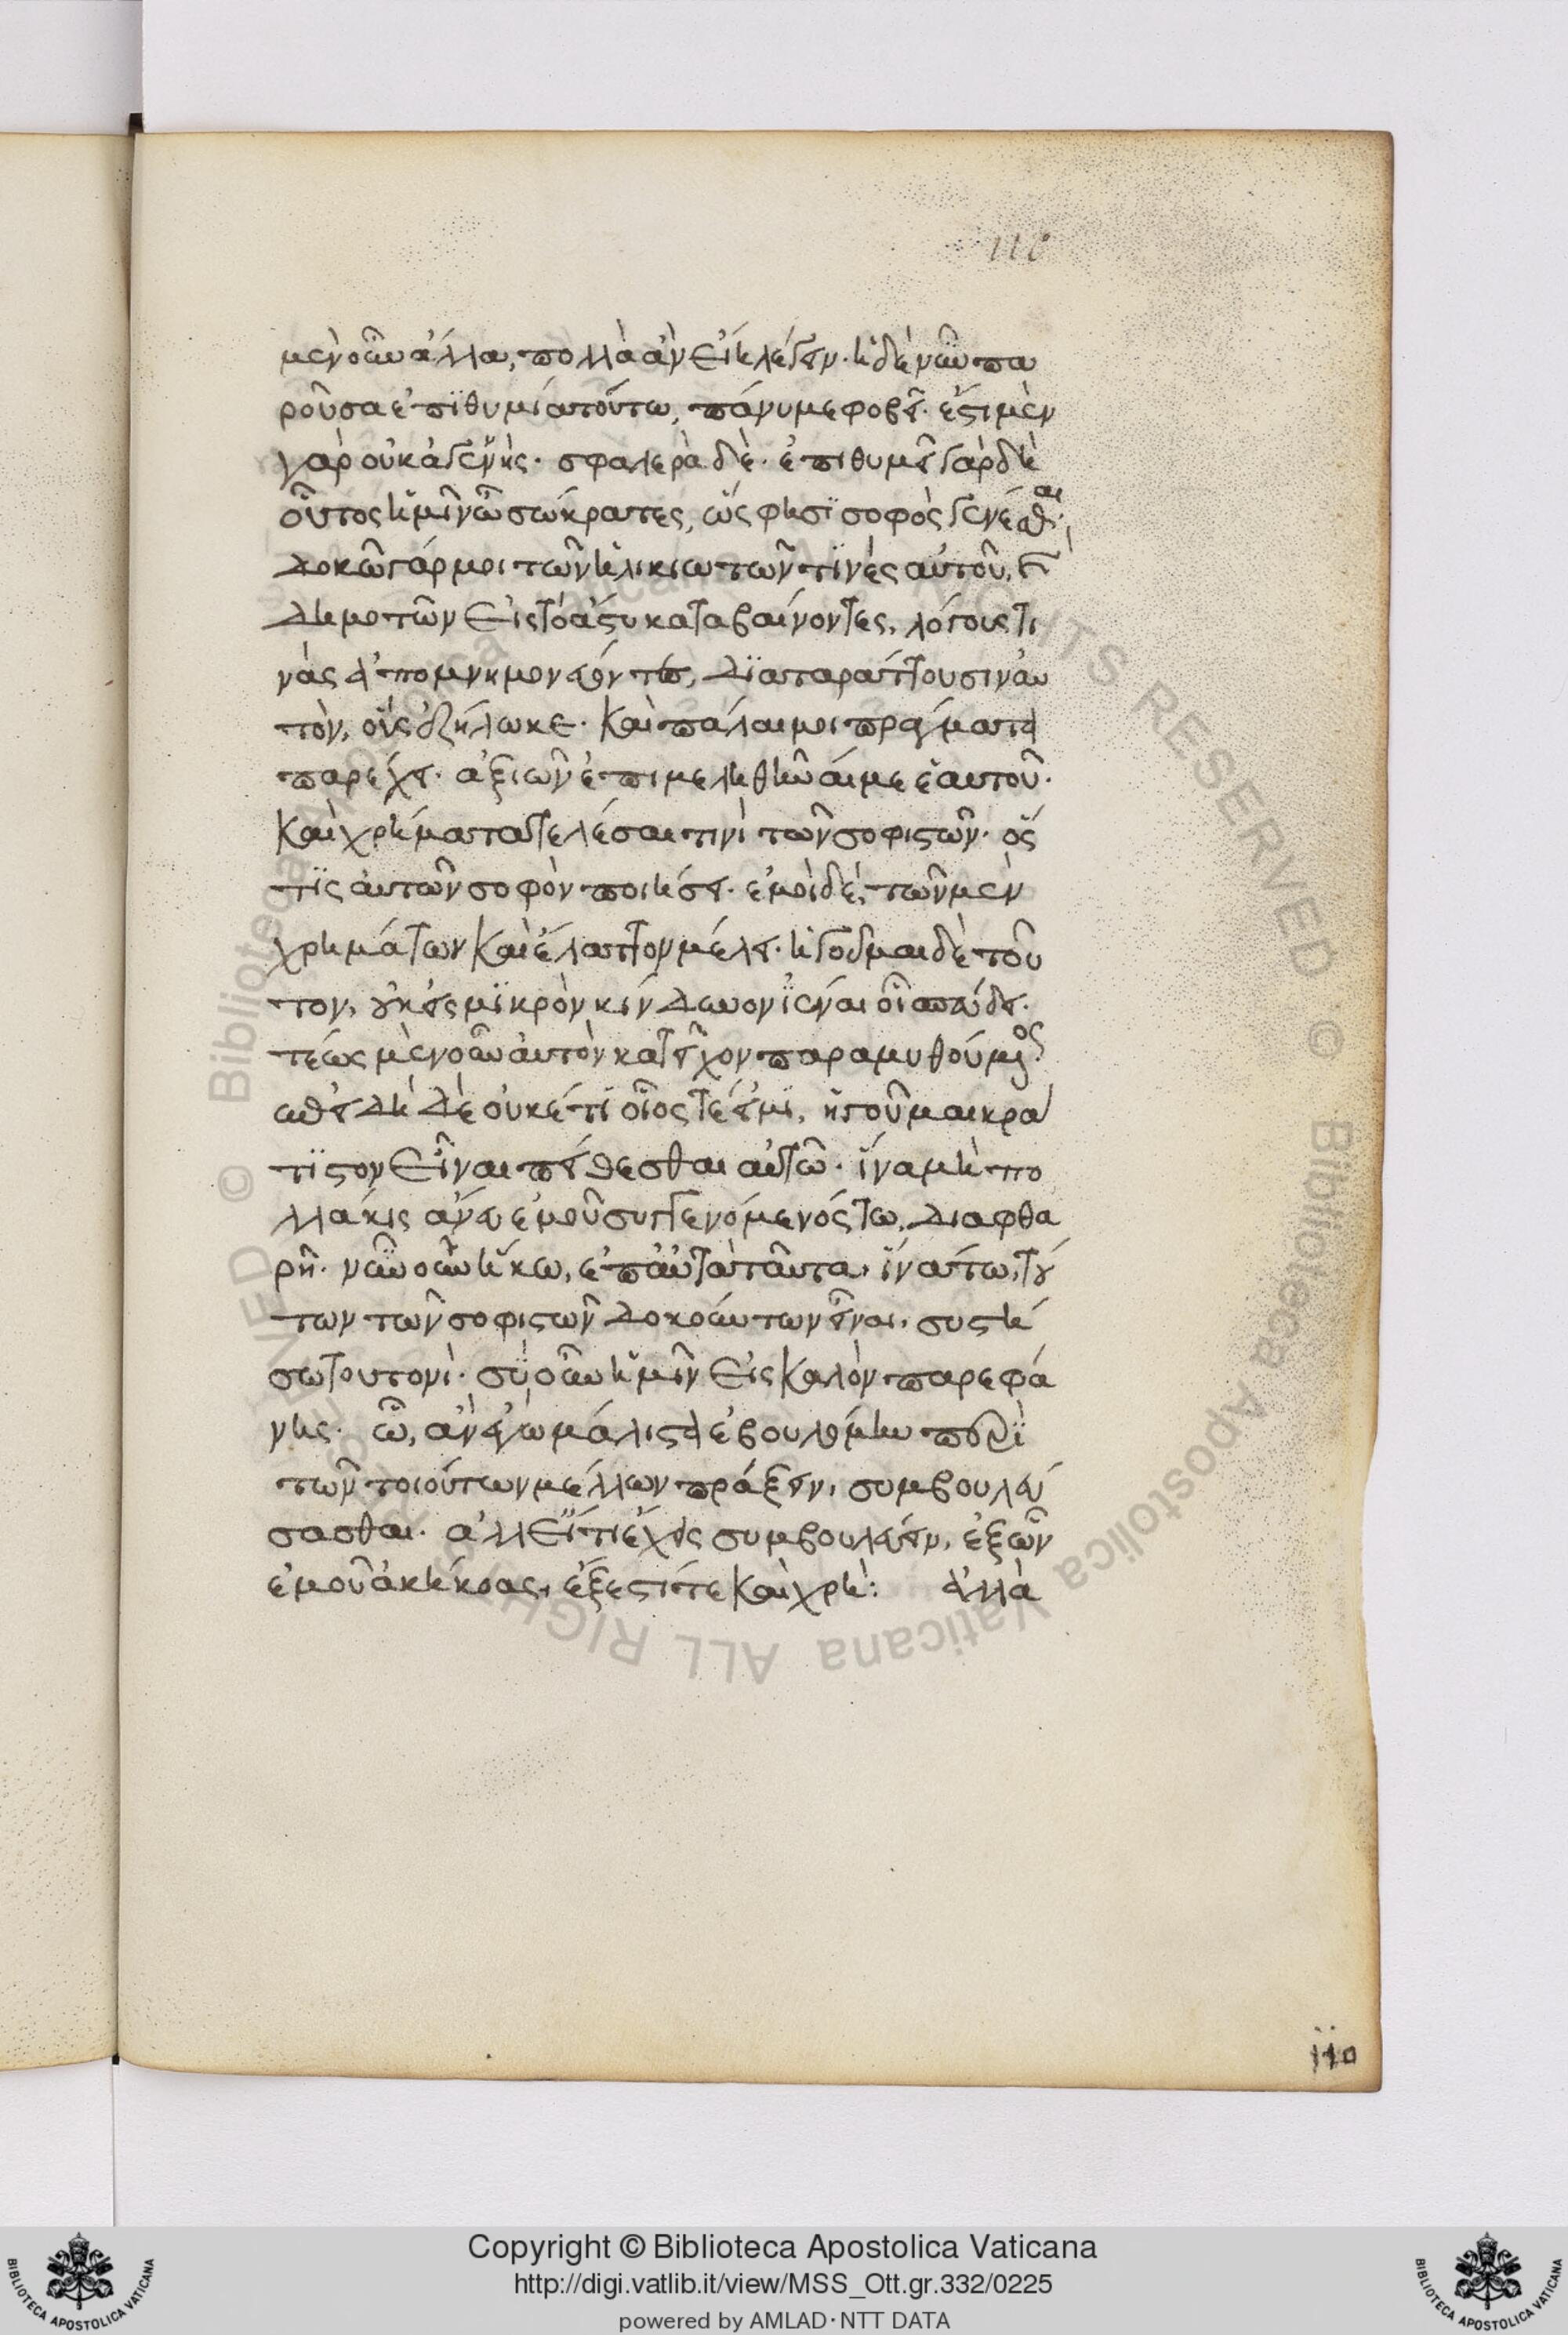 116
μὲν οὖν ἄλλα, πολλὰ ἂν εἴη λέγειν· ἡ δὲ νῦν πα
ροῦσα ἐπϊθυμία τούτω, πάνυ με φοβεῖ· ἔστι μὲν
γὰρ οὐκ ἀγενὴς· σφαλερὰ δὲ· ἐπιθυμεῖ γὰρ δὴ
οὗτος ἡμῖν ὦ σώκρατες, ὥς φησϊ σοφὸς γενέσθαι·
δοκῶ γάρ μοι τῶν ἡλικιωτῶν τϊνὲς αὐτοῦ, καὶ
δημοτῶν εἰς τὸ ἄστυ καταβαίνοντες, λόγους τι
νὰς ἀπομνημονεύοντες, δϊαταράττουσιν αὐ
τὸν, οὓς ἐζήλωκε· καὶ πάλαι μοι πράγματα
παρέχει· ἀξιῶν ἐπιμεληθῆναί με ἑαυτοῦ·
καὶ χρήματα τελέσαι τινὶ τῶν σοφιστῶν· ὅς
τϊς αὐτῶν σοφὸν ποιήσει· ἐμοὶ δὲ, τῶν μὲν
χρημάτων καὶ ἔλαττον μέλει· ἡγοῦμαι δὲ τοῦ
τον, οὐκ εἰς μϊκρὸν κίνδυνον ϊέναι οἷ σπεύδει·
τέως μὲν οὖν αὐτὸν κατεῖχον παραμυθούμενος
ἐπειδὴ δὲ οὐκέτϊ οἷός τέ εἰμϊ, ἡγοῦμαι κρά
τϊστον εἶναι πείθεσθαι αὐτῶ· ἵνα μὴ πο
λλάκις ἄνευ ἐμοῦ συγγενόμενός τω, διαφθα
ρῆ· νῦν οὖν ἥκω, ἐπ αὐτὰ ταῦτα, ἵνα τω, τού
των τῶν σοφιστῶν δοκούντων εἶναι, συστή
σω τουτονὶ· σὺ οὖν ἡμῖν εἰς καλὸν παρεφά
νης· ὧ, ἂν ἐγὼ μάλιστα ἐβουλόμην περὶ
τῶν τοιούτων μέλλων πράξειν, συμβουλεύ
σασθαι· ἀλλ εἴ τι ἔχεις συμβουλεύειν, ἐξ ὧν
ἐμοῦ ἀκήκοας, ἔξεστί τε καὶ χρὴ: ἀλλὰ
110
© Biblioteca Apostolica Vaticana ALL RIGHTS RESERVED
Copyright © Biblioteca Apostolica Vaticana
http://digi.vatlib.it/view/MSS_Ott.gr.332/0225
powered by AMLAD·NTT DATA
BIBLIOTECA APOSTOLICA VATICANA
BIBLIOTECA APOSTOLICA VATICANA